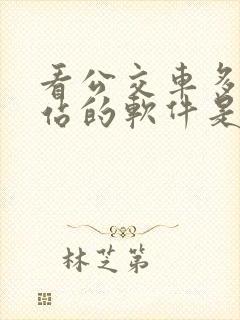 看公交車多
估的軟件是
林芝第